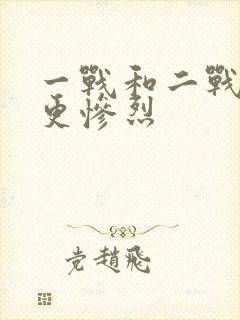 一戰和二戰
更慘烈
党趙飛